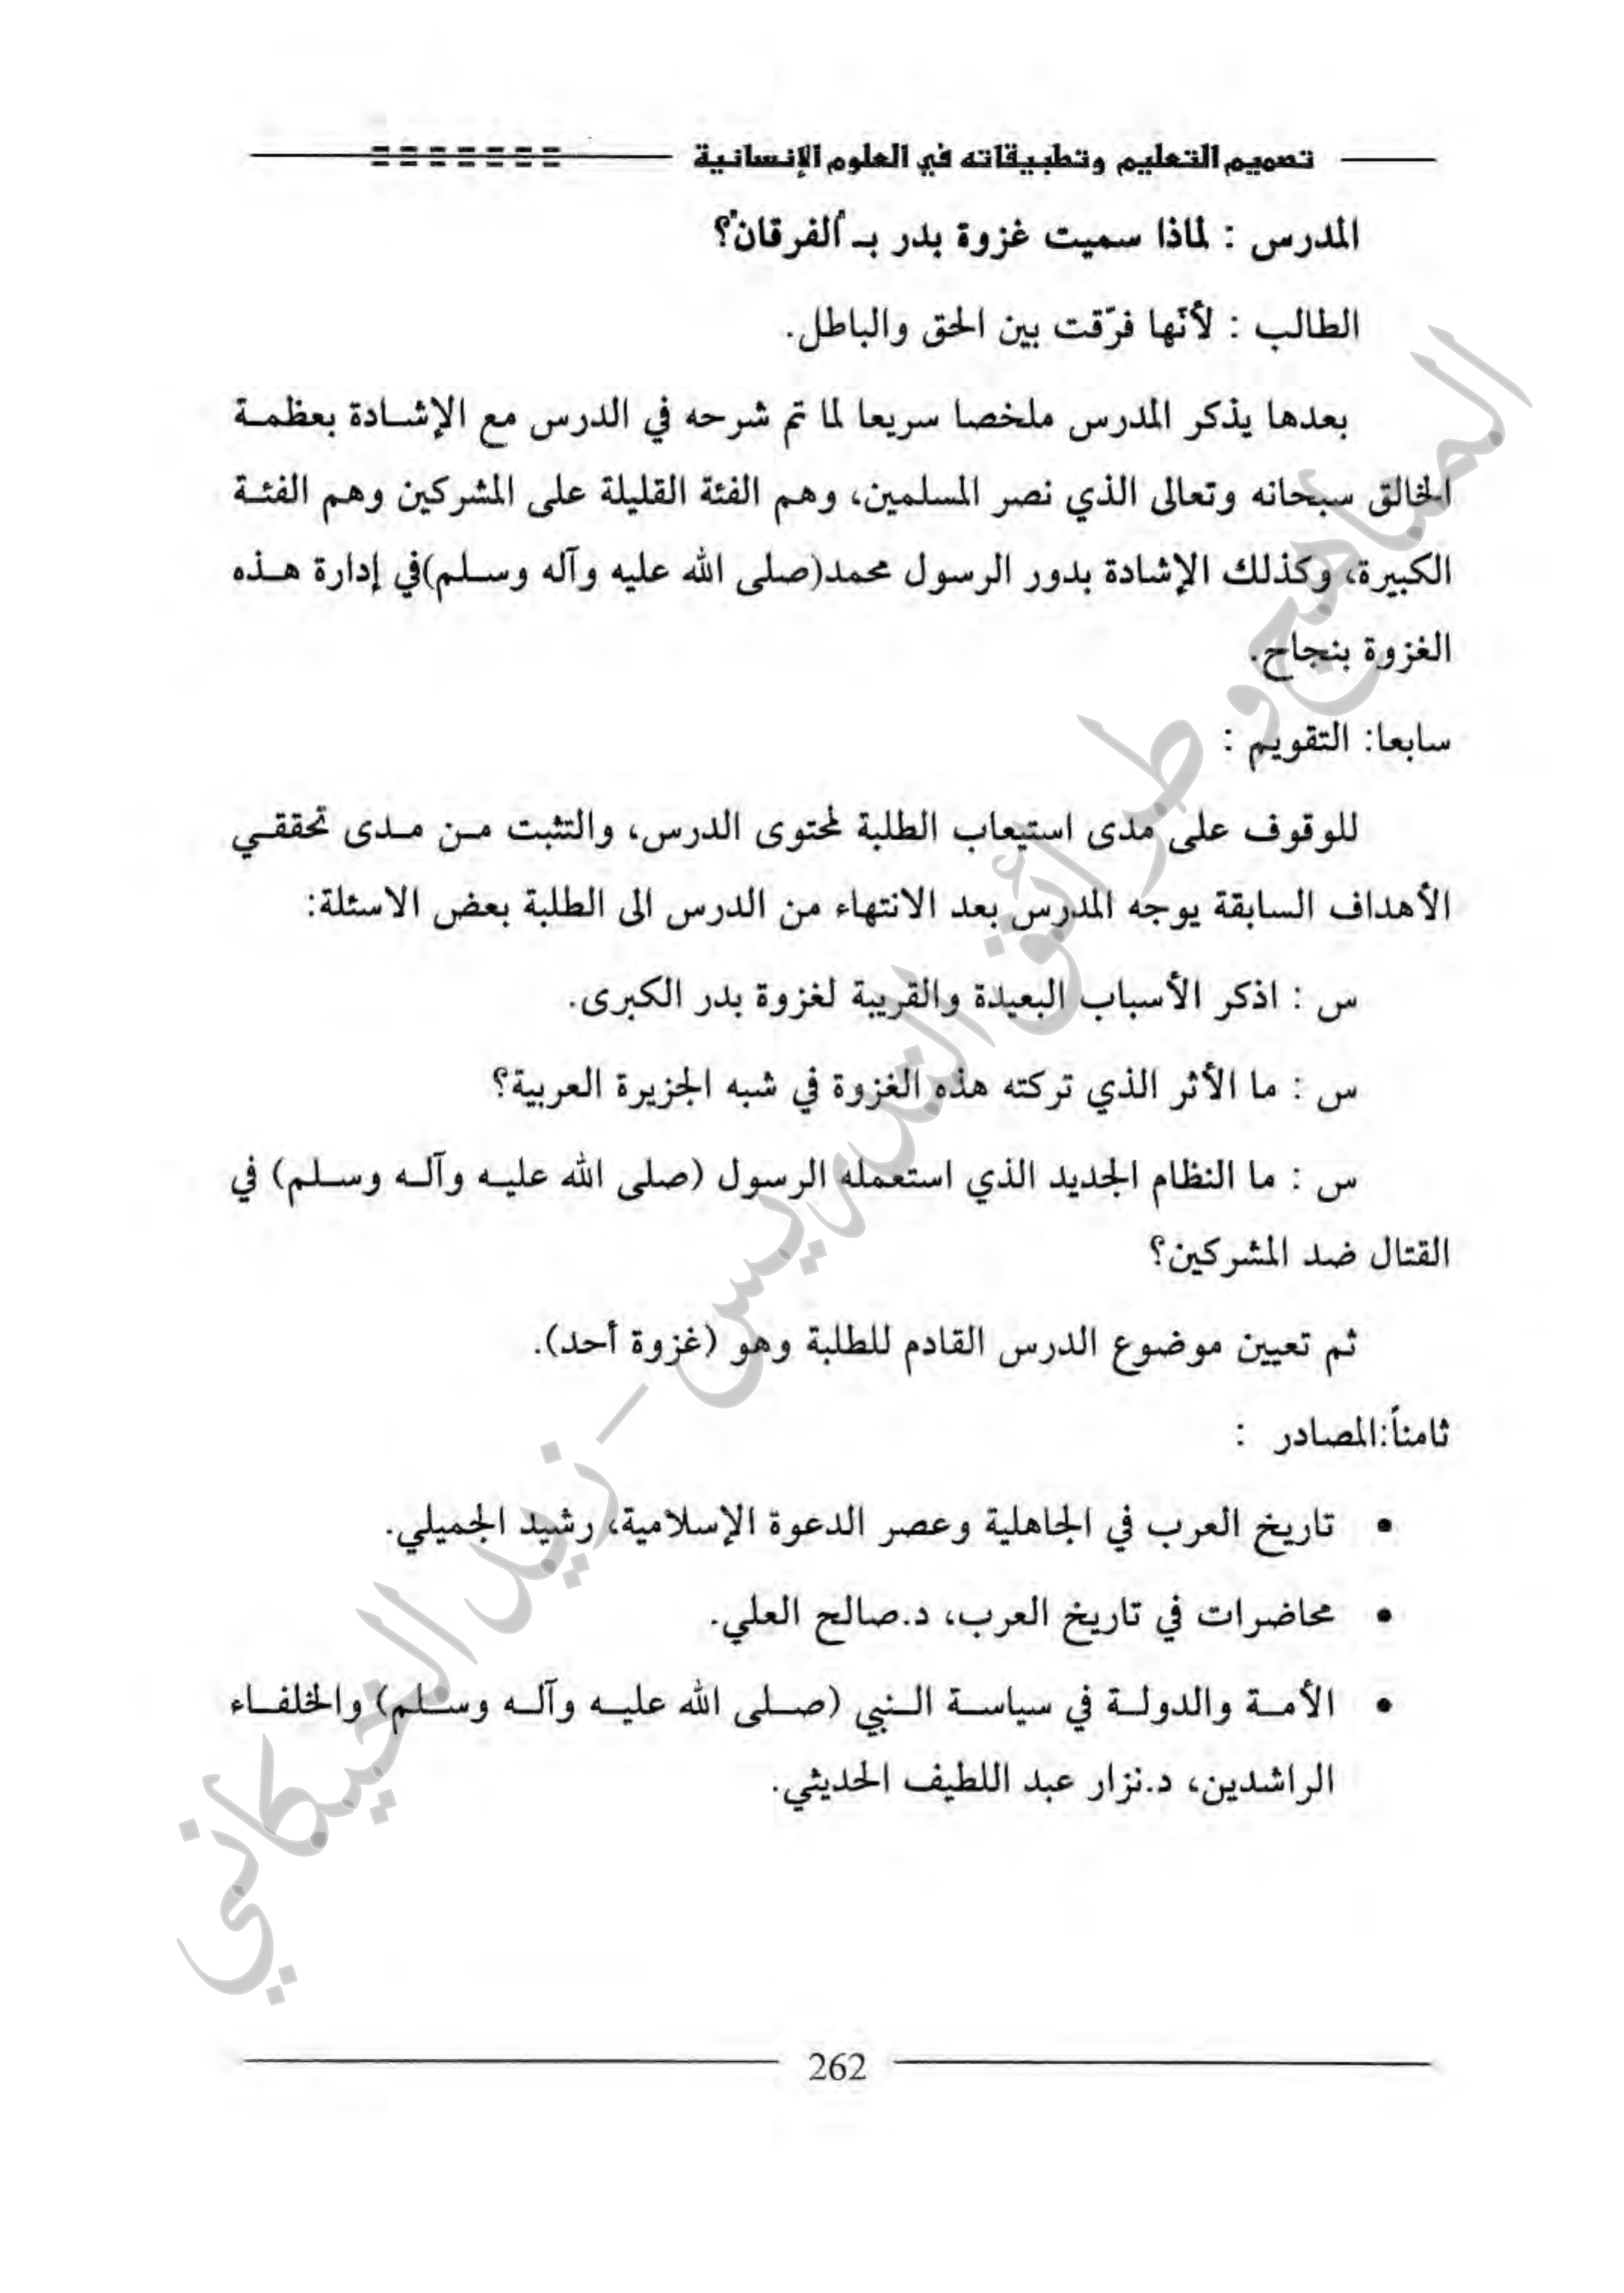 تصميم التعليم وتطبيقاته في العلوم الإنسانية
المدرس : لماذا سميت غزوة بدر بـ "الفرقان"؟
الطالب : لأنّها فرّقت بين الحق والباطل.
بعدها يذكر المدرس ملخصا سريعا لما تم شرحه في الدرس مع الإشادة بعظمة
الخالق سبحانه وتعالى الذي نصر المسلمين، وهم الفئة القليلة على المشركين وهم الفئة
الكبيرة، وكذلك الإشادة بدور الرسول محمد(صلى الله عليه وآله وسلم)في إدارة هذه
الغزوة بنجاح.
سابعا: التقويم :
للوقوف على مدى استيعاب الطلبة لمحتوى الدرس، والتثبت من مدى تحققي
الأهداف السابقة يوجه المدرس بعد الانتهاء من الدرس الى الطلبة بعض الاسئلة:
س : اذكر الأسباب البعيدة والقريبة لغزوة بدر الكبرى.
س : ما الأثر الذي تركته هذه الغزوة في شبه الجزيرة العربية؟
س : ما النظام الجديد الذي استعمله الرسول (صلى الله عليه وآله وسلم) في
القتال ضد المشركين؟
ثم تعيين موضوع الدرس القادم للطلبة وهو (غزوة أحد).
ثامناً:المصادر :
• تاريخ العرب في الجاهلية وعصر الدعوة الإسلامية، رشيد الجميلي.
• محاضرات في تاريخ العرب، د.صالح العلي.
• الأمة والدولة في سياسة النبي (صلى الله عليه وآله وسلم) والخلفاء
الراشدين، د.نزار عبد اللطيف الحديثي.
262
المناهج وطرائق التدريس - زيد الخيكاني